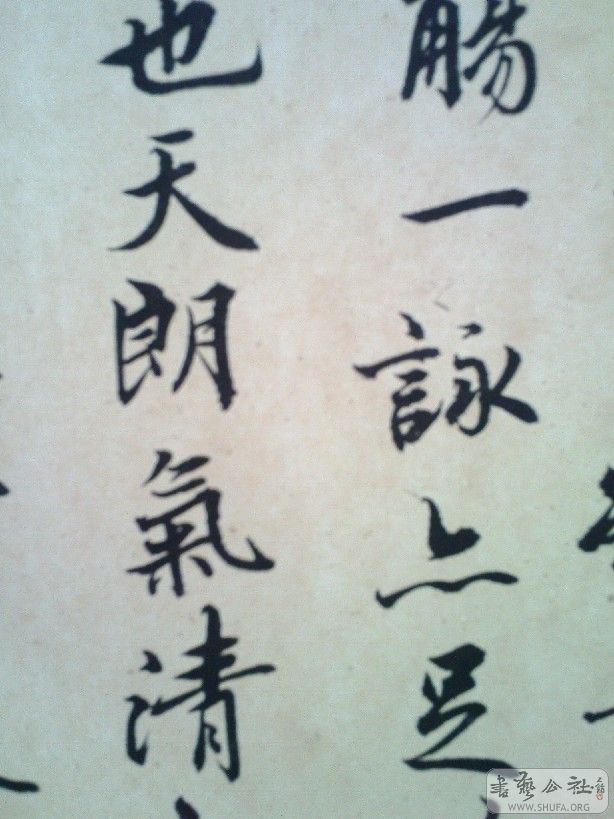 觴一詠亦足
也天朗氣清
書藝公社
WWW.SHUFA.ORG